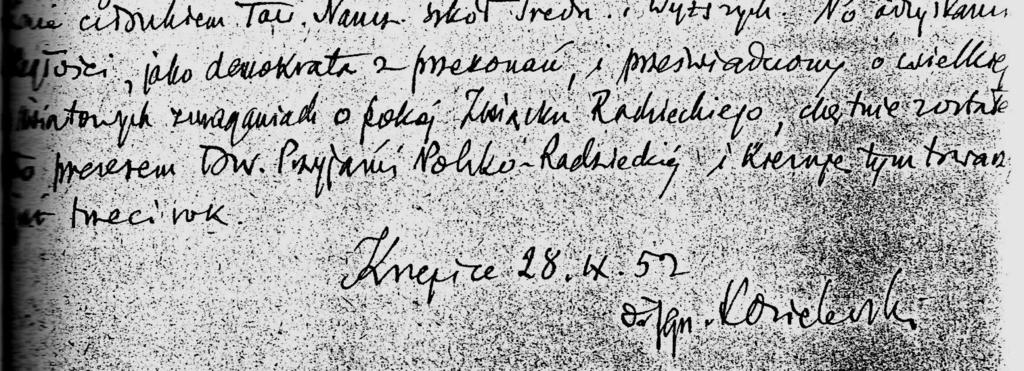 nie członkiem Tow. Naucz. Szkół Średn. i Wyższych Po odzyskaniu
jako demokrata z przekonań, i przeświadczony o wielkiej
światowych zmaganiach o pokój Związku Radzieckiego, chętnie
prezesem Tow. Przyjaźni Polsko-Radzieckiej i kieruję tym
trzeci rok.
Krzepice 28.IX.52
dr Ign. Kozielewski